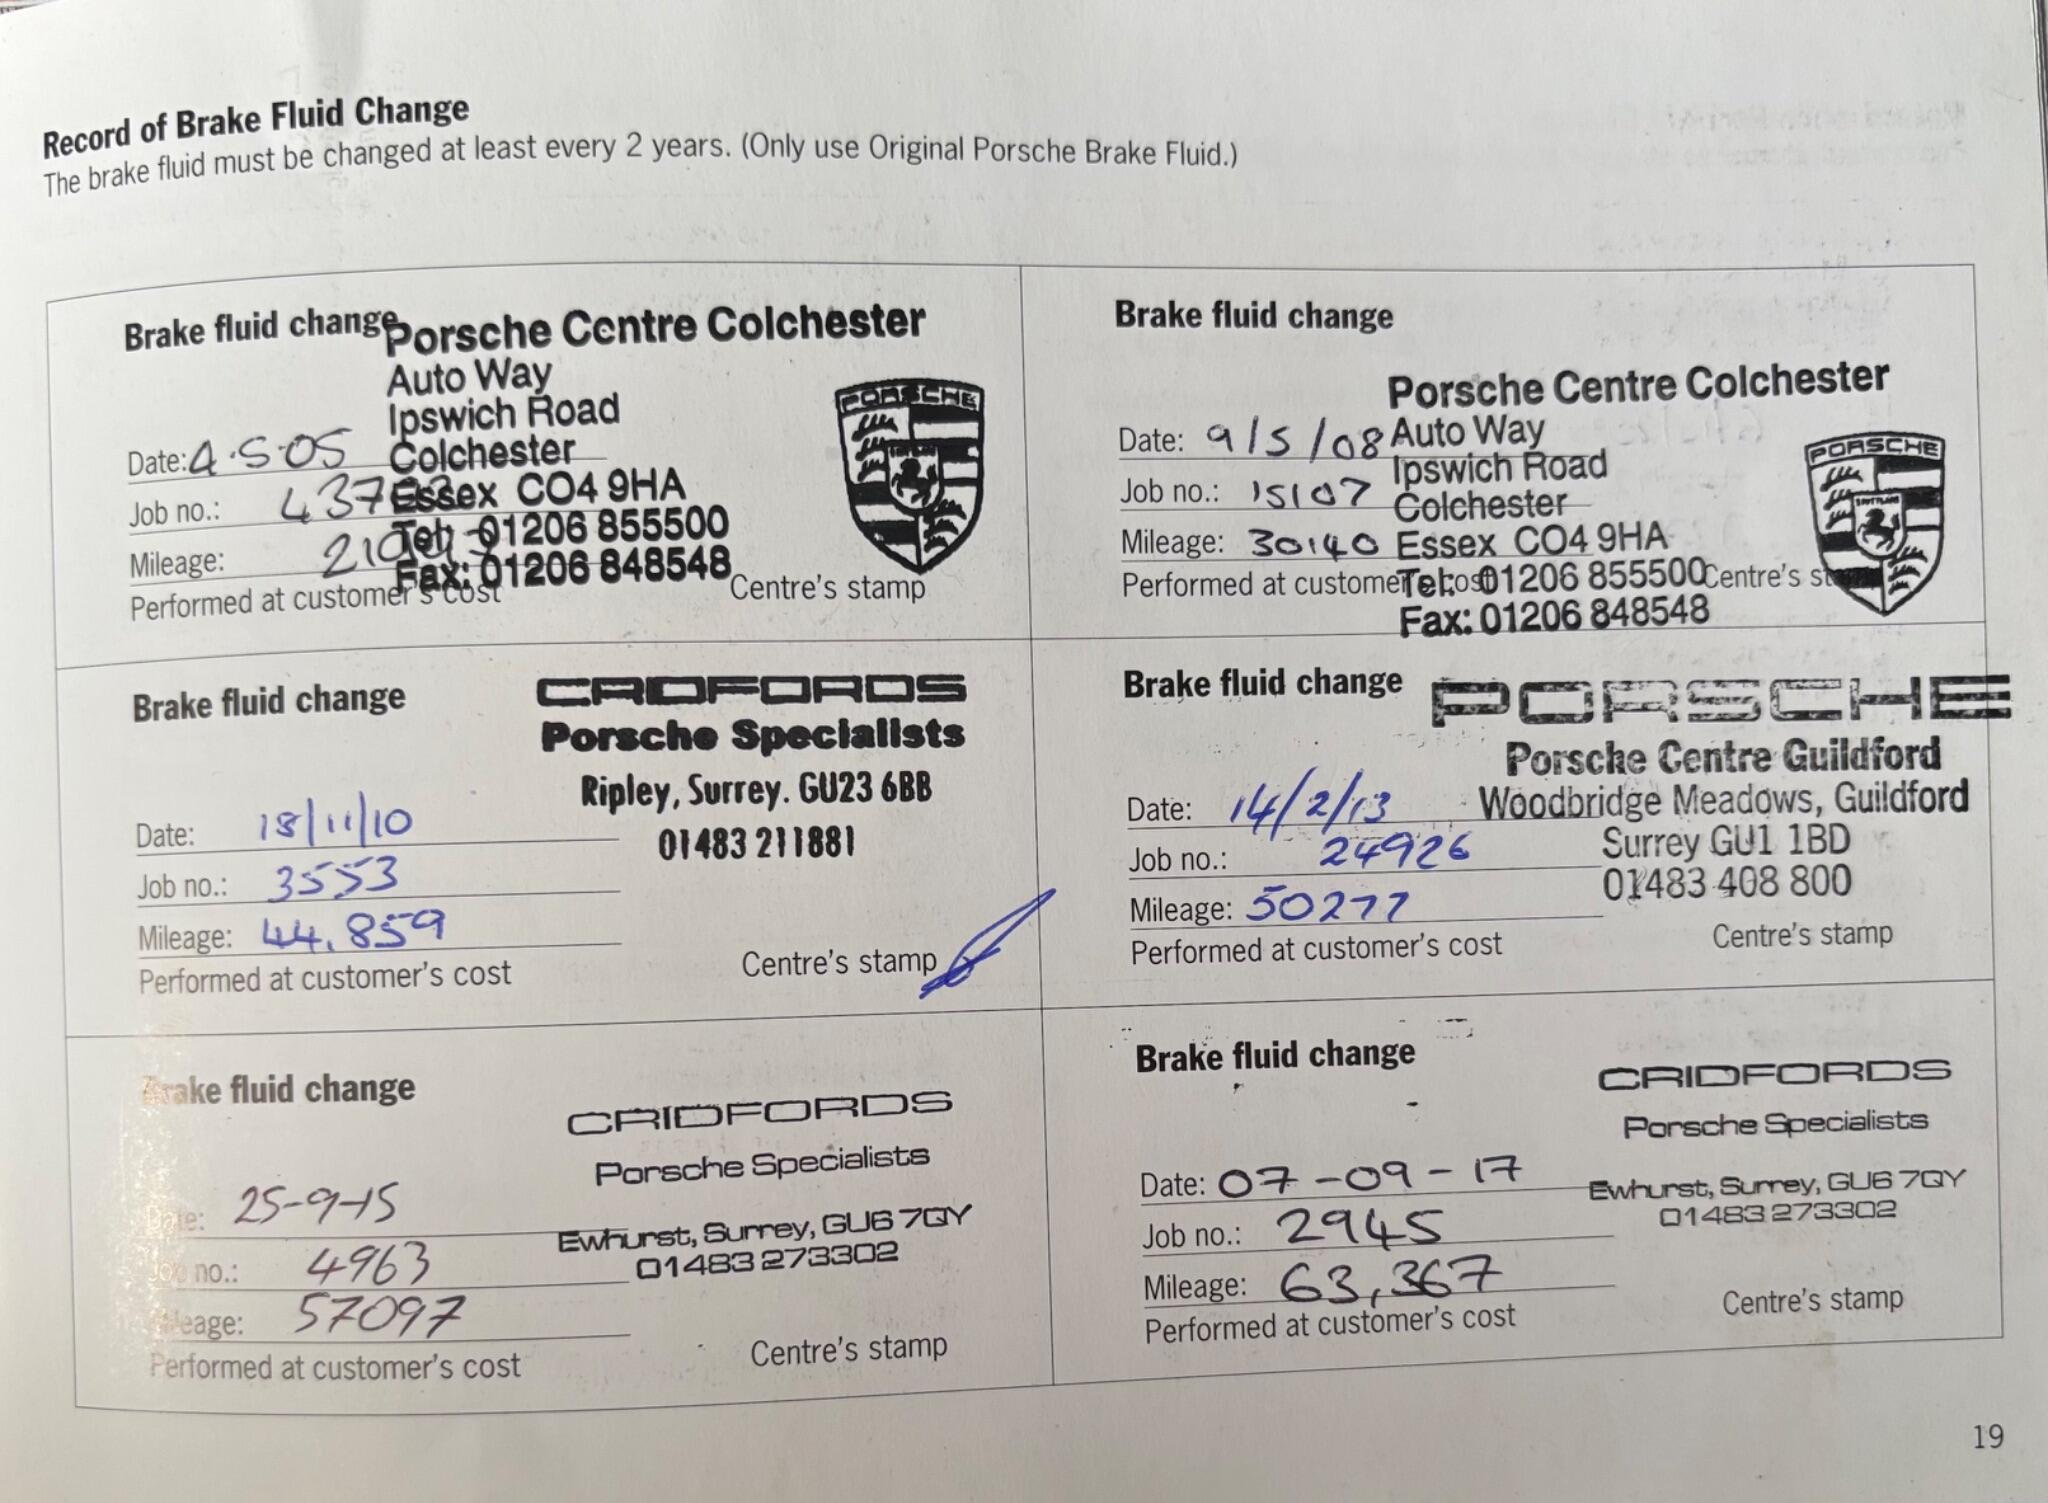 Record of Brake Fluid Change
The brake fluid must be changed at least every 2 years. (Only use Original Porsche Brake Fluid.)
Brake fluid change
Porsche Centre Colchester
Auto Way
Ipswich Road
Colchester
Essex CO4 9HA
Tel: 01206 855500
Fax: 01206 848548
PORSCHE
Date: 4.5.05
Job no.:
Mileage:
Performed at customer's cost
Centre's stamp
Brake fluid change
Porsche Centre Colchester
Auto Way
Ipswich Road
Colchester
Essex CO4 9HA
Tel: 01206 855500
Fax: 01206 848548
PORSCHE
Date: 9/5/08
Job no.: 15107
Mileage: 30140
Performed at customer's cost
Centre's stamp
Brake fluid change
CRIDFORDS
Porsche Specialists
Ripley, Surrey. GU23 6BB
01483 211881
Date: 18/11/10
Job no.: 3553
Mileage: 44,859
Performed at customer's cost
Centre's stamp
Brake fluid change
PORSCHE
Porsche Centre Guildford
Woodbridge Meadows, Guildford
Surrey GU1 1BD
01483 408 800
Date: 14/2/13
Job no.: 24926
Mileage: 50277
Performed at customer's cost
Centre's stamp
Brake fluid change
CRIDFORDS
Porsche Specialists
Ewhurst, Surrey, GU6 7QY
01483 273302
Date: 25-9-15
Job no.: 4963
Mileage: 57097
Performed at customer's cost
Centre's stamp
Brake fluid change
CRIDFORDS
Porsche Specialists
Ewhurst, Surrey, GU6 7QY
01483 273302
Date: 07-09-17
Job no.: 2945
Mileage: 63,367
Performed at customer's cost
Centre's stamp
19